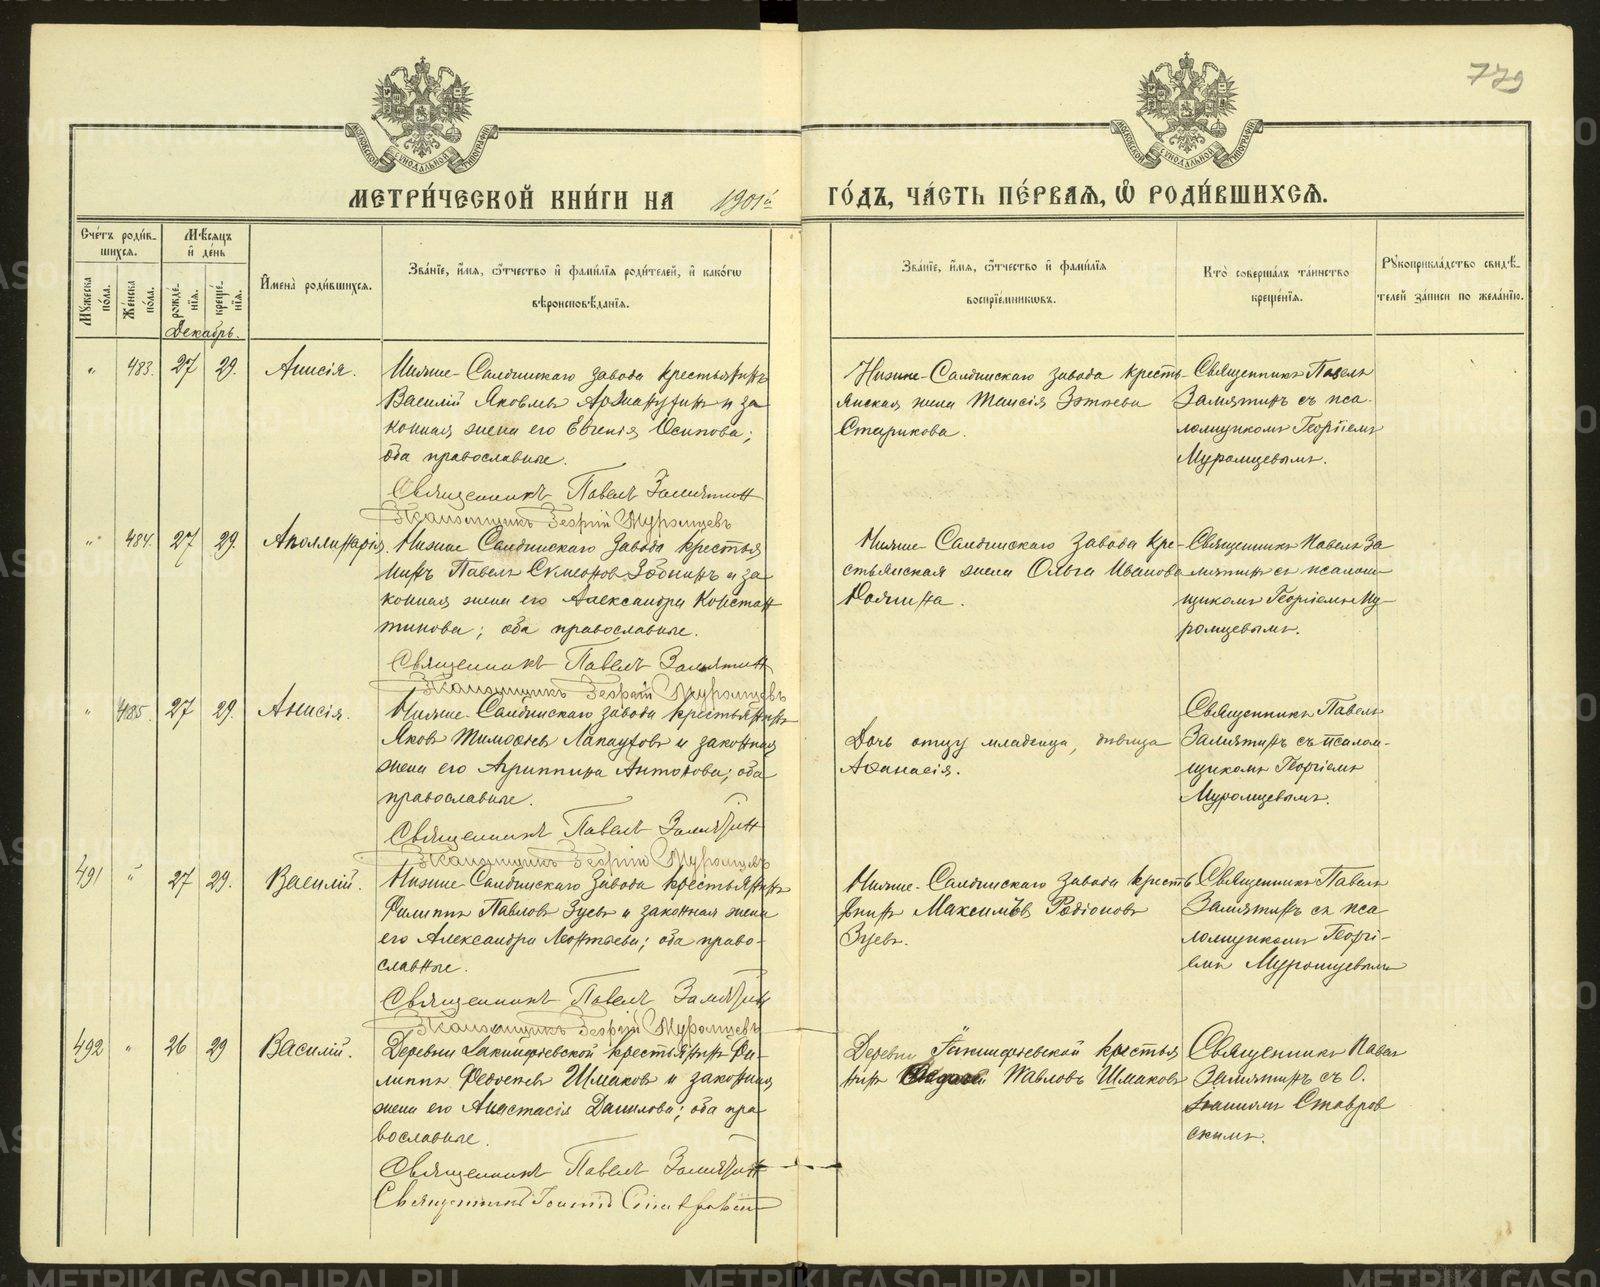 779
МЕТРИ́ЧЕСКОЙ КНИ́ГИ НА 1901й ГО́ДЪ, ЧА́СТЬ ПЕ́РВАЯ, Ѡ РОДИ́ВШИХСЯ.
Сче́тъ роди́в-
шихся.
Мѣ́сяцъ
и де́нь
Му́жеска по́ла.
Же́нска по́ла.
рожде́-
нїя.
креще́-
нїя.
Декабрь.
Имена̀ роди́вшихся.
Зва́нїе, и́мя, ѻ҆́тчество и фами́лїя роди́телей, и како́гѡ
вѣроисповѣ́данїя.
Зва́нїе, и́мя, ѻ҆́тчество и фами́лїя
воспрїе́мникѡвъ.
Кто̀ соверша́лъ та́инство
креще́нїя.
Рꙋкоприкла́дство свидѣ́-
телей за́писи по жела́нїю.
" 483. 27 29. Анисія.
Нижне-Салдинскаго завода крестьянинъ
Василій Яковлевъ и за
конная жена его Евгенія Осипова;
оба православные.
Священникъ Павелъ Замятин
Псаломщикъ Георгій Муромцевъ
Нижне-Салдинскаго завода кресть
янская жена Таисія
Старикова.
Священникъ Павелъ
Замятинъ съ пса-
ломщикомъ Георгіемъ
Муромцевымъ.
" 484. 27 29. Аполлинарія.
Нижне Салдинскаго завода крестья
нинъ Павелъ и за
конная жена его Александра Констан
тинова; оба православные.
Священникъ Павелъ Замятин
Псаломщикъ Георгій Муромцевъ
Нижне-Салдинскаго завода кре-
стьянская жена Ольга Иванова
Священникъ Павелъ За
мятинъ съ псалом-
щикомъ Георгіемъ Му-
ромцевымъ.
" 485. 27 29. Анисія.
Нижне-Салдинскаго завода крестьянинъ
Яковъ Тимофеевъ Лапауховъ и законная
жена его Агриппина Антонова; оба
православные.
Священникъ Павелъ Замятин
Псаломщикъ Георгій Муромцевъ
Дочь отцу младенца, дѣвица
Афанасія.
Священникъ Павелъ
Замятинъ съ псалом-
щикомъ Георгіемъ
Муромцевымъ.
491 " 27 29. Василій.
Нижне Салдинскаго завода крестьянинъ
Филиппъ Павловъ Зуевъ и законная жена
его Александра Леонтьева; оба право-
славные.
Священникъ Павелъ Замятин
Псаломщикъ Георгій Муромцевъ
Нижне-Салдинскаго завода кресть
янинъ Максимъ Родіоновъ
Зуевъ.
Священникъ Павелъ
Замятинъ съ пса
ломщикомъ Георгі-
емъ Муромцевымъ
492 " 26 29 Василій.
Деревни крестьянинъ Фи-
липпъ Федосеевъ Шмаковъ и законная
жена его Анастасія Данилова; оба пра
вославные.
Священникъ Павелъ Замятин
Священникъ Іоаннъ Ставровскій
Деревни крестья
нинъ Павловъ Шмаковъ
Священникъ Павелъ
Замятинъ съ О.
Іоанномъ Ставров
скимъ.
METRIKI.GASO-URAL.RU